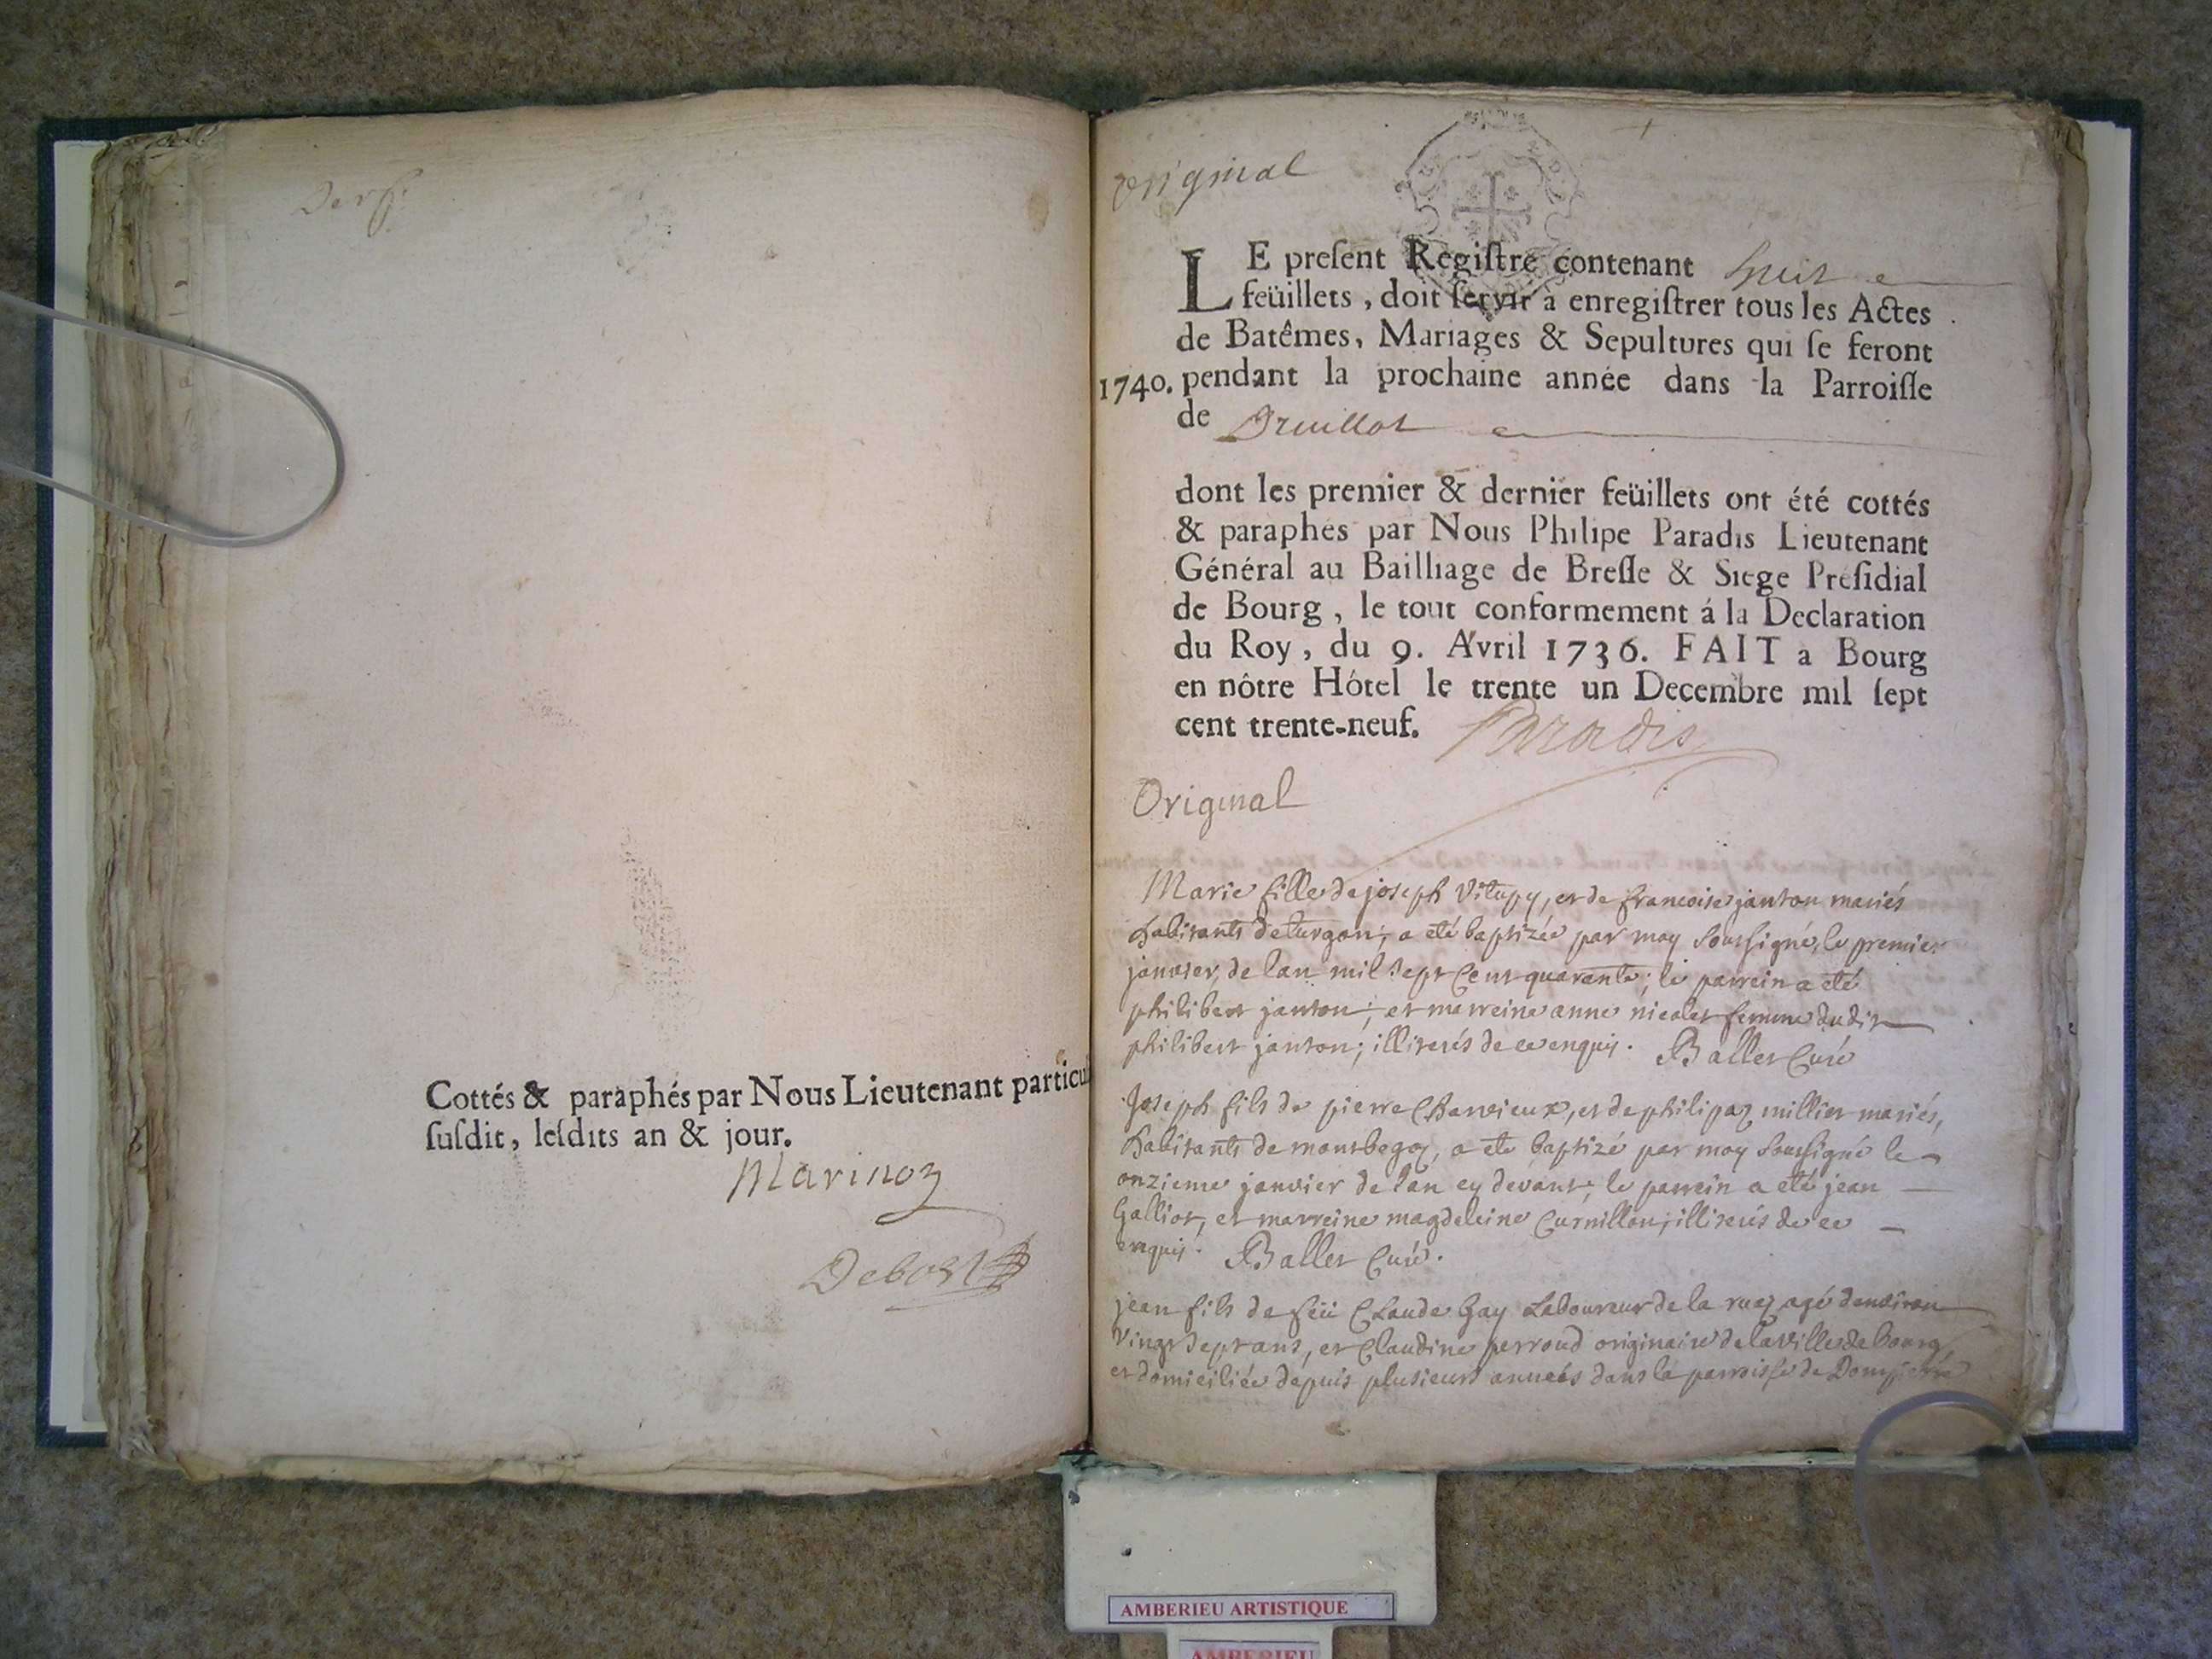 Cottés & paraphés par Nous Lieutenant particul
ſuſdit, leſdits an & jour.
Marinon
Debost
Original
LE preſent Regiſtre contenant huit
feüillets, doit ſervir à enregiſtrer tous les Actes
de Batêmes, Mariages & Sepultures qui ſe feront
1740. pendant la prochaine année dans la Parroiſſe
de Druillat
dont les premier & dernier feüillets ont été cottés
& paraphés par Nous Philipe Paradis Lieutenant
Général au Bailliage de Breſſe & Siege Preſidial
de Bourg, le tout conformement á la Declaration
du Roy, du 9. Avril 1736. FAIT a Bourg
en nôtre Hôtel le trente un Decembre mil ſept
cent trente-neuf. Paradis
Original
Marie fille de joseph Vitupy, et de francoise janton mariés
habitants de turgon; a eté baptizée par moy soussigné, le premier
janvier, de lan mil sept Cent quarante; le parrein a eté
philibert janton; et marreine anne nicolet femme dudit
philibert janton; illiterés de ce enquis. Ballet Curé
Joseph fils de pierre Charvieux, et de philipaz millier mariés,
habitants de montbegoz, a ete baptizé par moy soussigné le
onzieme janvier de lan cy devant; le parrein a eté jean
Galliot, et marreine magdeleine Curnillon; illiterés de ce
enquis. Ballet Curé.
jean fils de feü Claude Gay Laboureur de la ruaz agé denviron
Vingt sept ans, et Claudine perroud originaire de la Ville de bourg,
et domiciliée depuis plusieurs annees dans la parroisse de Dompierre
AMBERIEU ARTISTIQUE
AMBERIEU